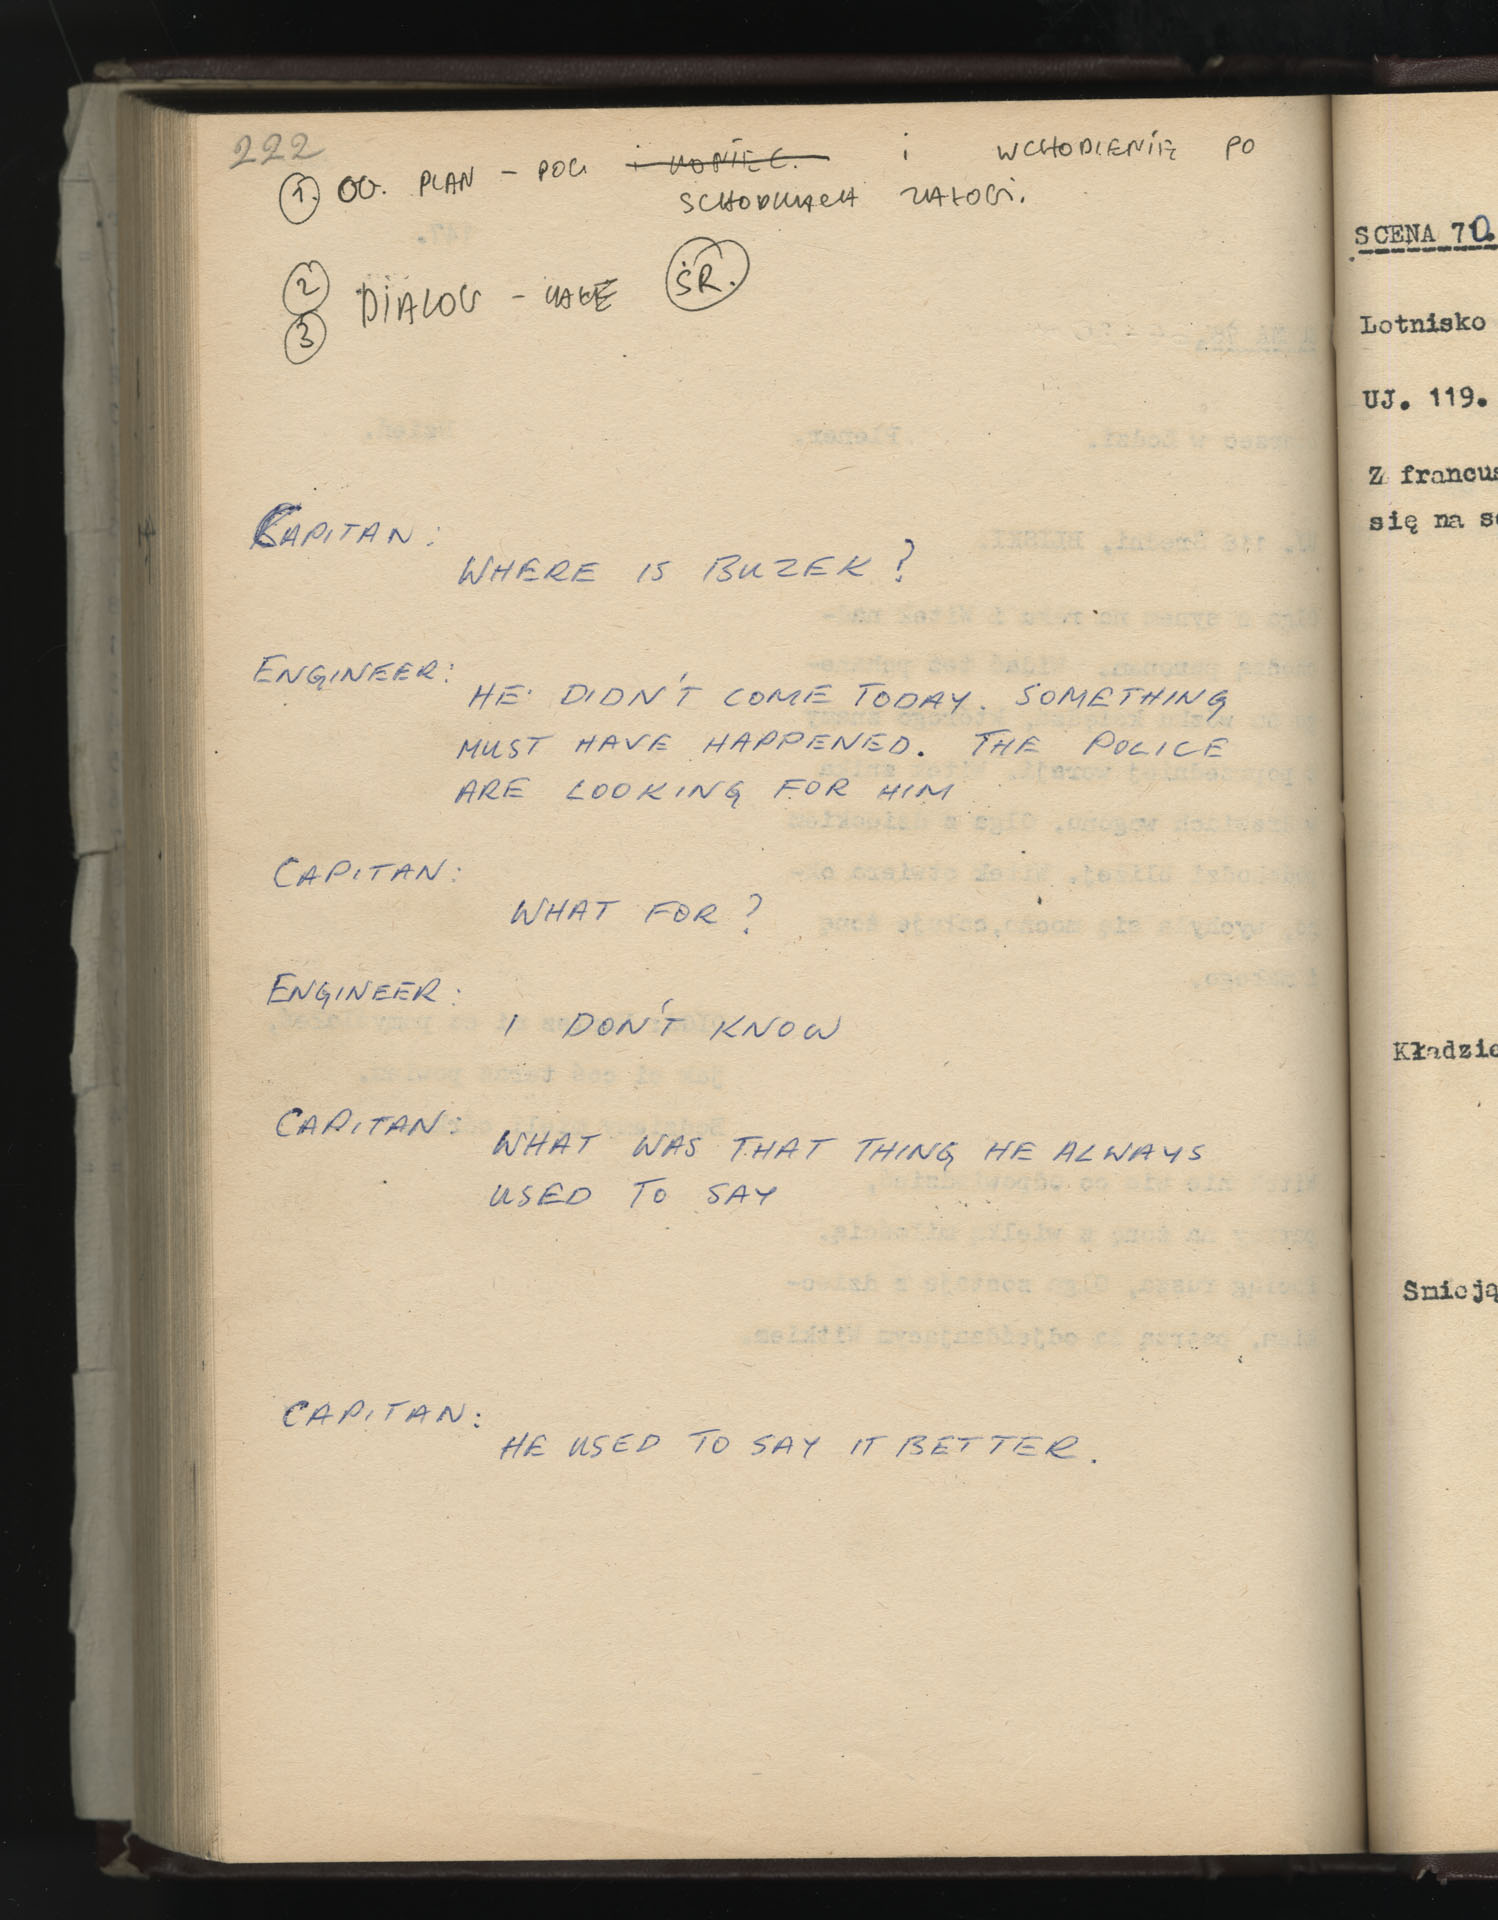 222
1. OG. PLAN - POCZ i KONIEC. i WCHODZENIE PO
SCHODKACH ZAŁOGI.
2 DIALOG - CAŁE ŚR.
3
CAPITAN:
WHERE IS BUZEK?
ENGINEER:
HE DIDN'T COME TODAY. SOMETHING
MUST HAVE HAPPENED. THE POLICE
ARE LOOKING FOR HIM
CAPITAN:
WHAT FOR?
ENGINEER:
I DON'T KNOW
CAPITAN:
WHAT WAS THAT THING HE ALWAYS
USED TO SAY
CAPITAN:
HE USED TO SAY IT BETTER.
SCENA 70.
Lotnisko
UJ. 119.
Z francus
się na s
Kładzie
Smieją